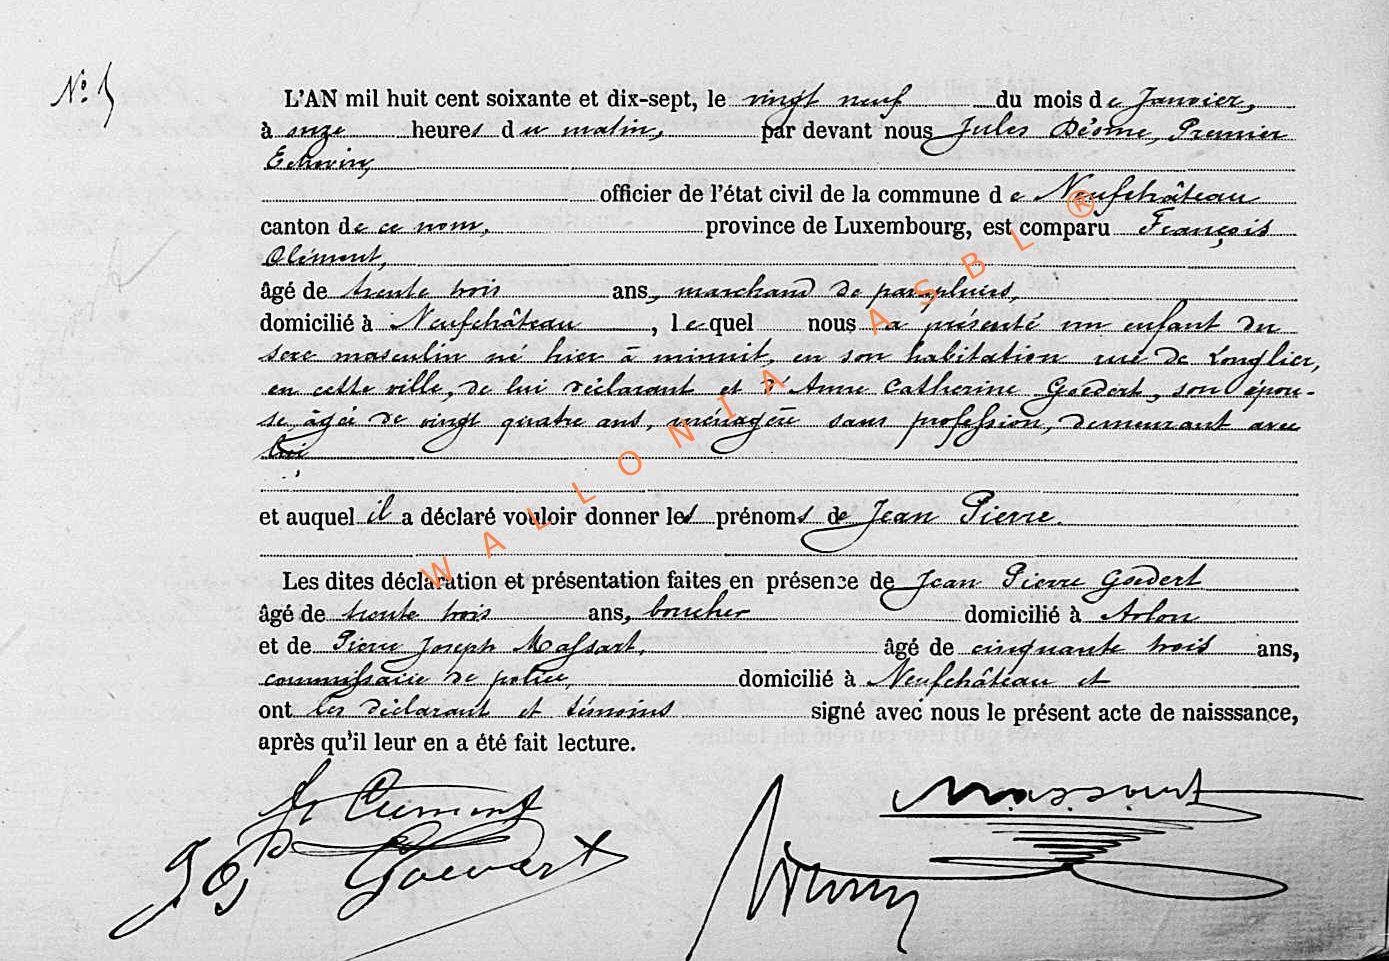 N° 5
L'AN mil huit cent soixante et dix-sept, le vingt neuf du mois de Janvier,
à onze heures du matin, par devant nous Jules Désome, Premier
Echevin,
officier de l'état civil de la commune de Neufchâteau
canton de ce nom, province de Luxembourg, est comparu François
Clément,
âgé de trente trois ans, marchand de parapluies,
domicilié à Neufchâteau, lequel nous a présenté un enfant du
sexe masculin né hier à minuit, en son habitation rue de Longlier,
en cette ville, de lui déclarant et d'Anne Catherine Goedert, son épou-
se, âgée de vingt quatre ans, ménagère sans profession, demeurant avec
lui,
et auquel il a déclaré vouloir donner les prénoms de Jean Pierre.
Les dites déclaration et présentation faites en présence de Jean Pierre Goedert
âgé de trente trois ans, boucher domicilié à Arlon
et de Pierre Joseph Massart, âgé de cinquante trois ans,
commissaire de police, domicilié à Neufchâteau et
ont les déclarant et témoins signé avec nous le présent acte de naisssance,
après qu'il leur en a été fait lecture.
fr Clément
Massart
J P Goedert
WALLONIA ASBL ®